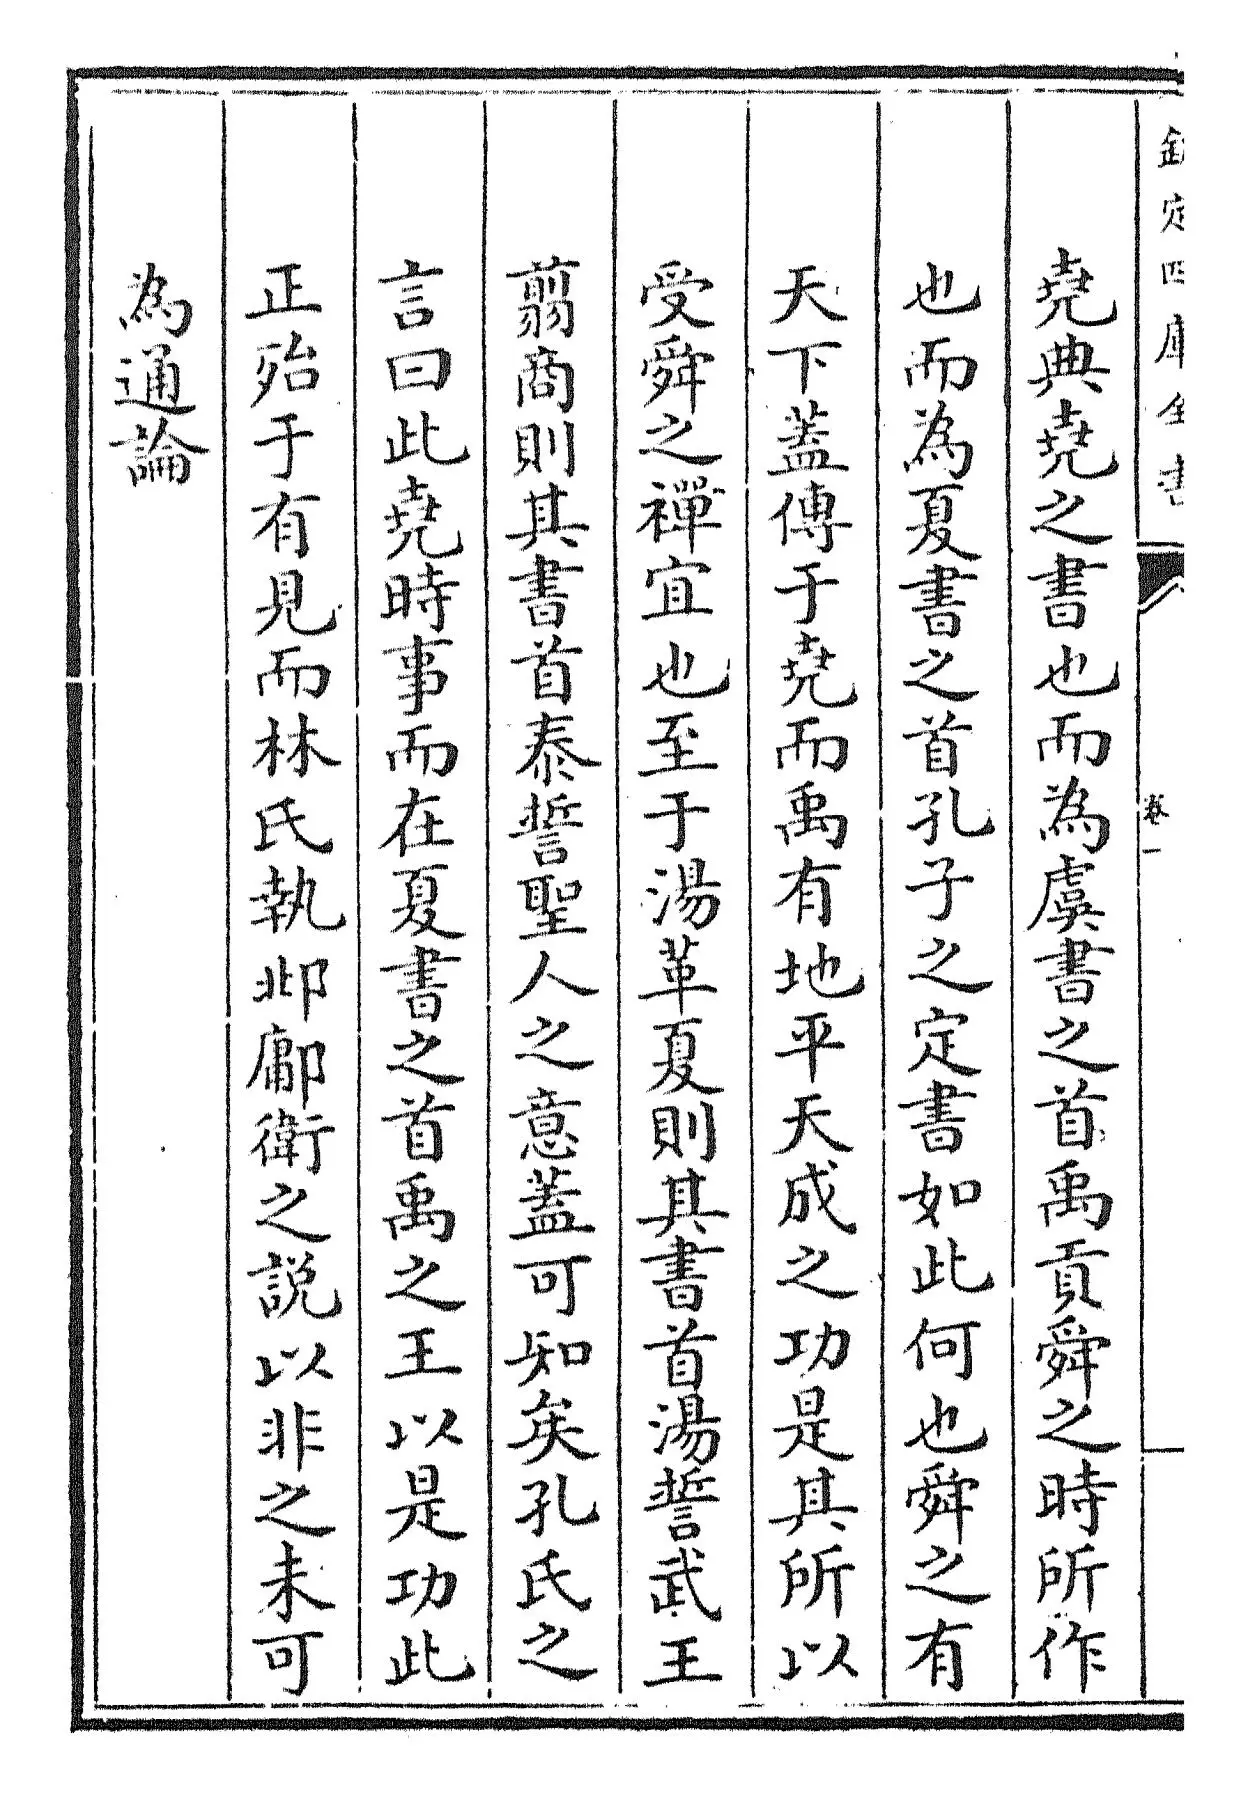 欽定四庫全書
卷一
堯典堯之書也而為虞書之首禹貢舜之時所作
也而為夏書之首孔子之定書如此何也舜之有
天下蓋傳于堯而禹有地平天成之功是其所以
受舜之禪宜也至于湯革夏則其書首湯誓武王
翦商則其書首泰誓聖人之意蓋可知矣孔氏之
言曰此堯時事而在夏書之首禹之王以是功此
正殆于有見而林氏執邶鄘衛之說以非之未可
為通論